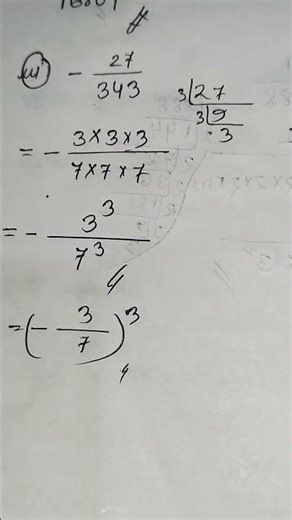 iii) - 27/343
3|27
3|9
3
= - 3×3×3 / 7×7×7
= - 3³ / 7³
= (- 3/7)³